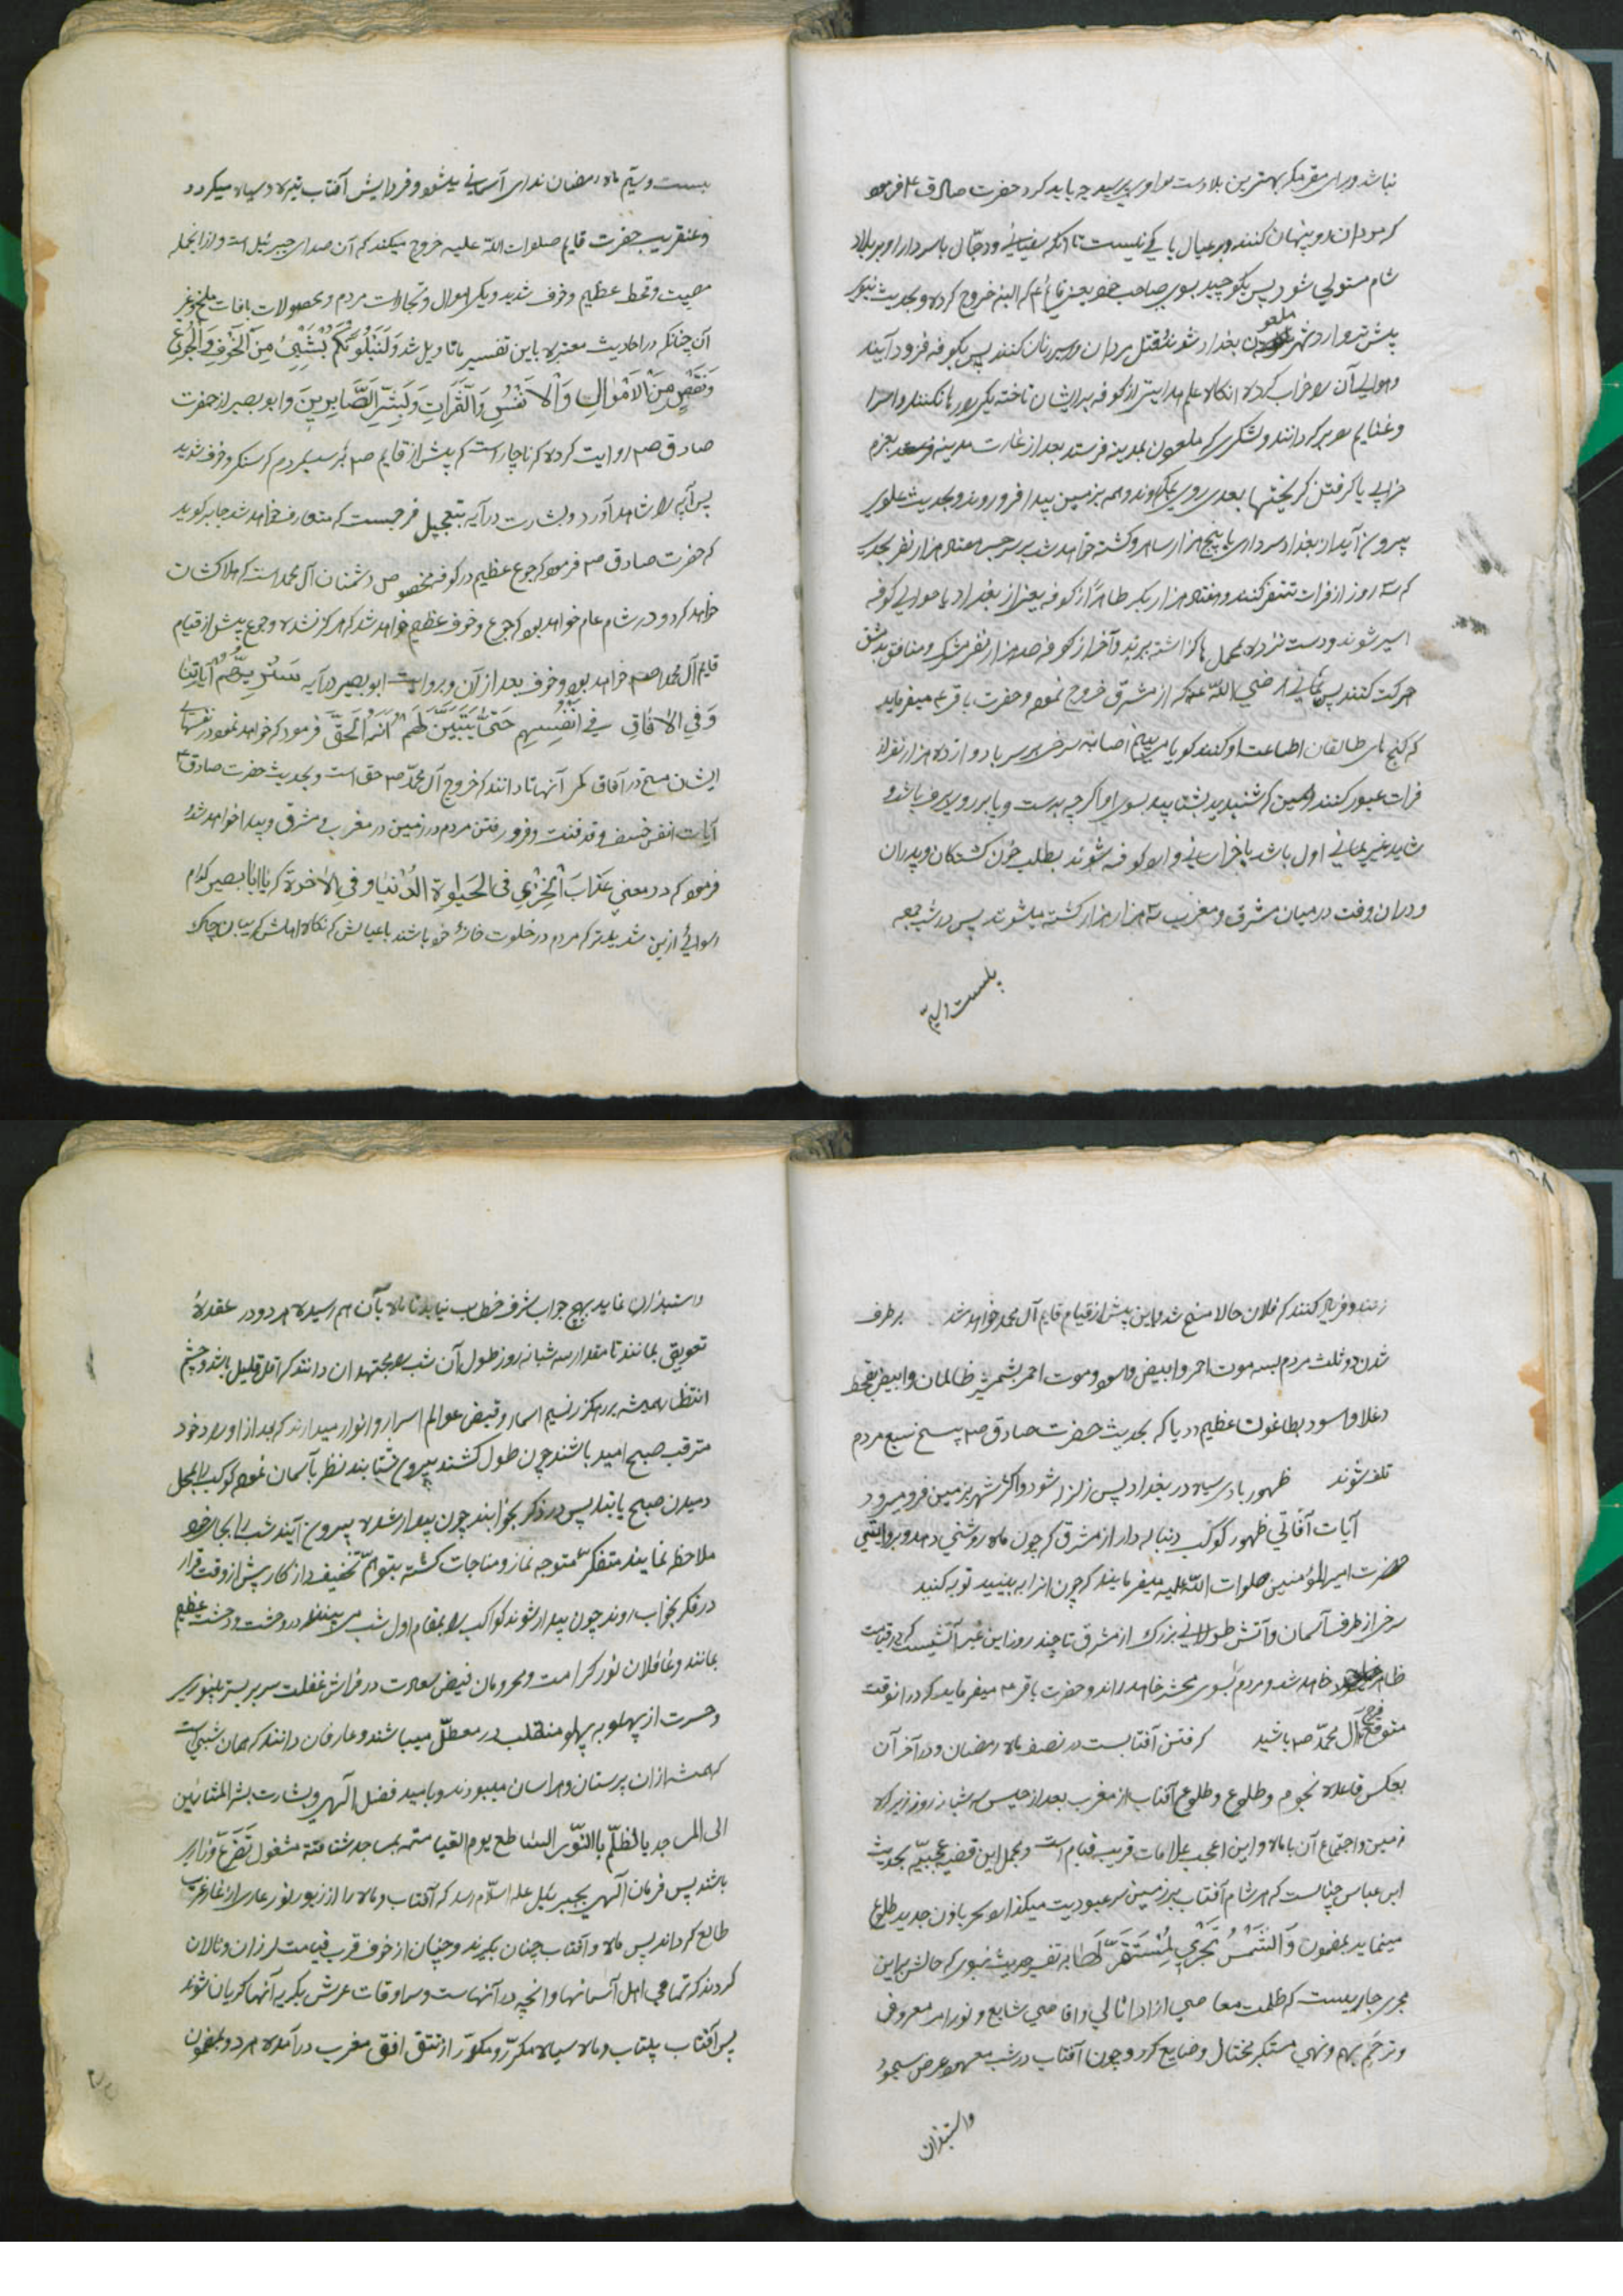 نباشد ورای مقر مکه بهترین بلادست او پرسید چه باید کرد حضرت صادق ع فرمود
که مردان رو پنهان کنند و بر عیال باکی نیست تا آنکه سفیانی و دجال با سردار او بر بلاد
شام مستولی شود پس بکوچید بسوی صاحب خود یعنی قائم ع که البته خروج کرده و بحدیث نبوی
پیشتر وارد شهر ملعون بغداد شوند قتل مردان و سیر زنان کنند پس بکوفه فرود آیند
و حوالی آن را خراب کرده انکاه علم هدایتی از کوفه بر ایشان تاخته یکی را رها نکنند و اسرا
و غنایم را بر کردانند و لشکری که ملعون بمدینه فرستد بعد از غارت مدینه بعزم
خرابی یا کرفتن کریختها بعدی روی بمکه آوند و همه بزمین بیدا فرو روند و بحدیث علوی
بیرون آید از بغداد سرداری با پنج هزار ساحر و کشته خواهد شد بر سر جسر هفتاد هزار نفر بحدی
که سه روز از فرات تنفر کنند و هفتاد هزار بکر طاهراً از کوفه یعنی از بغداد یا حوالی کوفه
اسیر شوند و دست نزده بمحمل ها کزاشته برند و آخر از کوفه صد هزار نفر مشرک و منافق بدمشق
حرکت کنند پس یمانی رضی الله عنه که از مشرق خروج نموده و حضرت باقر ع میفرماید
که کنج های طالقان اطاعت او کنند کویا می بینم اصابه سرخ بر سر با دوازده هزار نفر از
فرات عبور کنند همین که شنیدید بشتابید بسوی او اکرچه بدست و پا بر روی برف باشد و
شاید غیر یمانی اول باشد یا خراسانی وارد کوفه شوند بطلب خون کشتکان و پدران
و دران وقت در میان مشرق و مغرب سه هزار هزار کشته میشوند پس در شب جمعه
بیست و سیم
بیست و سیم ماه رمضان ندای آسمانی میشود و فردایش آفتاب تیره و سیاه میکردد
و عنقریب حضرت قایم صلوات الله علیه خروج میکند که آن صدای جبرئیل است و از انجمله
مصیبت و قحط عظیم و خوف شدید و یکی اموال و تجارات مردم و محصولات بافات ملخ و غیر
آن چنانکه در احادیث معتبره باین تفسیر یا تاویل شد وَلَنَبْلُوَنَّكُمْ بِشَيْءٍ مِنَ الْخَوْفِ وَالْجُوعِ
وَنَقْصٍ مِنَ الْأَمْوَالِ وَالْأَنْفُسِ وَالثَّمَرَاتِ وَبَشِّرِ الصَّابِرِينَ وابو بصیر از حضرت
صادق ص روایت کرده که ناچار است که پیش از قایم ص برسد بمردم کرسنکی و خوف شدید
پس آیه را شاهد آورد و بشارت در آیه بتعجیل فرجیست که متعارف خواهد شد جابر کوید
که حضرت صادق ص فرمود که جوع عظیم در کوفه مخصوص دشمنان آل محمد است که هلاکشان
خواهد کرد و در شام عام خواهد بود که جوع و خوف عظیم خواهد شد که هرکز نشده و جوع پیش از قیام
قایم آل محمد ص خواهد بود و خوف بعد از آن و بروایت ابو بصیر در آیه سَنُرِيهِمْ آيَاتِنَا
وَفِي الْآفَاقِ فِي أَنْفُسِهِمْ حَتَّى يَتَبَيَّنَ لَهُمْ أَنَّهُ الْحَقُّ فرمود که خواهد نمود در نفسهای
ایشان مسخ در آفاق کمر آنها تا دانند که خروج آل محمد ص حق است و بحدیث حضرت صادق ع
آیات انفس خسف و قذفست و فرو رفتن مردم در زمین در مغرب و مشرق و بیدا خواهد شد و
فرمود که در معنی عَذَابَ الْخِزْيِ فِي الْحَيوةِ الدُّنْيَا وَفِي الْآخِرَةِ که یا ابا بصیر کدام
رسوائی ازین شدیدتر که مردم در خلوت خانهٔ خود باشند با عیالش که نکاه اهلش کریبان چاک
زنند و فریاد کنند که فلان حالا مسخ شد و این پیش از قیام قایم آل محمد خواهد شد بر طرف
شدن دو ثلث مردم بسه موت احمر و ابیض و اسود و موت احمر بشمشیر ظالمان و ابیض بقحط
و غلا و اسود بطاعون عظیم و وبا که بحدیث حضرت صادق ص پنج سبع مردم
تلف شوند ظهور بادی سیاه در بغداد پس زلزله شود و اکثر شهر بزمین فرو میرود
آیات آفاقی ظهور کوکب دنباله دار از مشرق که چون ماه روشنی دهد و بروایتی
حضرت امیر المؤمنین صلوات الله علیه میفرمایند که چون انرا به بینید توبه کنید
سرخی از طرف آسمان و آتش طولانی بزرک از مشرق تا چند روز این غیر آتشیست که در قیامت
ظاهر خواهد شد و مردم بسوی محشر خواهد راند و حضرت باقر ع میفرماید که در انوقت
متوقع فرج آل محمد ص باشید کرفتن آفتابست در نصف ماه رمضان و در آخر آن
بعکس قاعده نجوم و طلوع و طلوع آفتاب از مغرب بعد از حبس سه شبانه روز زیر کره
زمین و اجتماع آن با ماه و این اعجب علامات قریب قیام است و مجمل این قضیه عجیبه بحدیث
ابن عباس چنانست که هر شام آفتاب بر زمین سر عبودیت میکذارد سحر باذن جدید طلوع
مینماید بمضمون وَالشَّمْسُ تَجْرِي لِمُسْتَقَرٍّ لَهَا به تفسیر حدیث نبوی که حالش براین
مجری جاریست که ظلمت معاصی از ادانی و اقاصی شایع و نور امر معروفی
و ترحم بهم و نهی مستکبر مختال و ضایع کردد و چون آفتاب در شب معهود عرض سجود
واستیذان
واستیذان نماید بهیچ جواب شرف خطاب نیابد تا ماه بآن هم رسیده هر دو در عقدهٔ
تعویق بمانند تا مقدار سه شبانه روز طول آن شب را مجتهدان دانند که اقل قلیل باشد و چشم
انتظار همیشه بر رهکزر نسیم اسحار و قبض عوالم اسرار و انوار میدارند که بعد از اوراد خود
مترقب صبح امید باشند چون طول کشند بیرون شتابند نظر بآسمان نموده کوکب را بمحل
دمیدن صبح یابند پس در ذکر بخوابند چون بیدار شده بیرون آیند شب را بحال خود
ملاحظه نمایند متفکر متوجه نماز و مناجات کشته بتوهم تخفیف و از کار پیش از وقت قرار
در فکر بخواب روند چون بیدار شوند کواکب را بمقام اول شب می بینند در وحشت و دهشت عظیم
بمانند و غافلان نور کرامت و محرومان فیض سعادت در فراش غفلت سر بر بستر
و حسرت از پهلو به پهلو منقلب در معطل میباشند و عارفان دانند که همان شبی است
که همیشه ازان پرستان و هراسان میبودند و بامید فضل الهی و بشارت بشر المشائین
الی المساجد بالظلم بالنور الساطع یوم القیامه بمساجد شتافته مشغول تضرع و زاری
باشند پس فرمان الهی بجبرئیل علیه السلام رسد که آفتاب و ماه را از زیور نور عاری از مغرب
طالع کرداند پس ماه و آفتاب چنان بکیرند و چنان از خوف قرب قیامت لرزان و نالان
کردند که تمامی اهل آسمانها و انچه در آنهاست و سراوقات عرش بکریه آنها کریان شوند
پس آفتاب بیتاب و ماه سیاه مکدر و مکور از تتق افق مغرب در آمده هر دو بمضمون